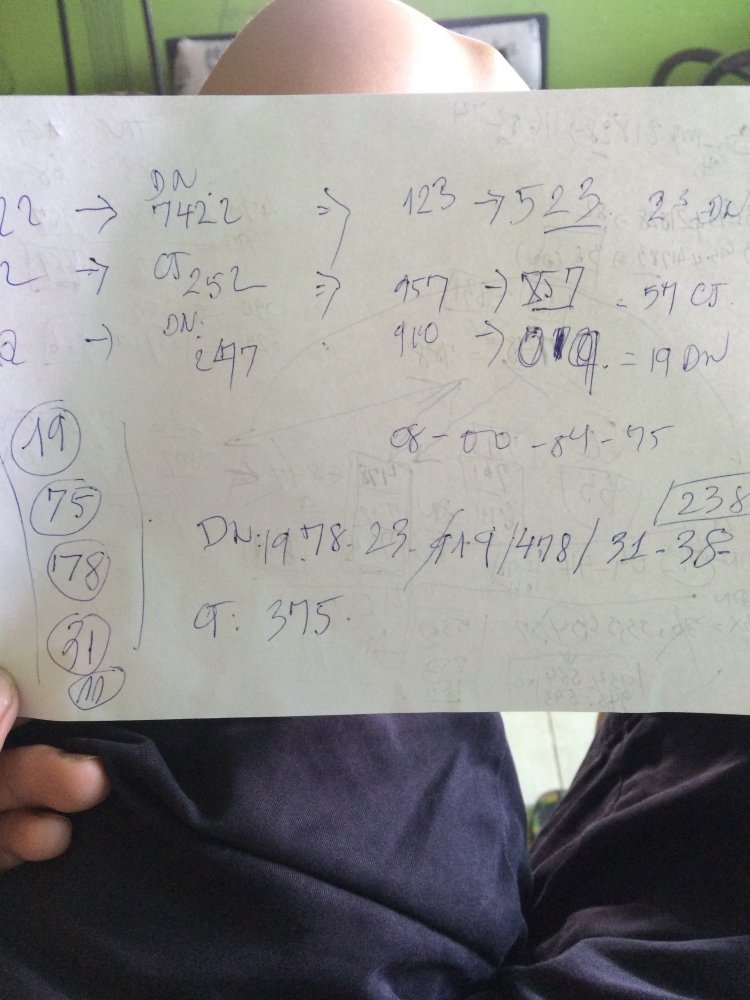 DN
22 → 7422 ⇒ 123 → 523. 23 DN
2 → CT 252 ⇒ 957 → 757 = 57 CT.
DN.
2 → 247 . 910 → 019. = 19 DN
19
08 - 00 - 84 - 75
75
238
DN: 19.78. 23. 919/478/ 31 - 38 =
78
CT: 375.
31
111